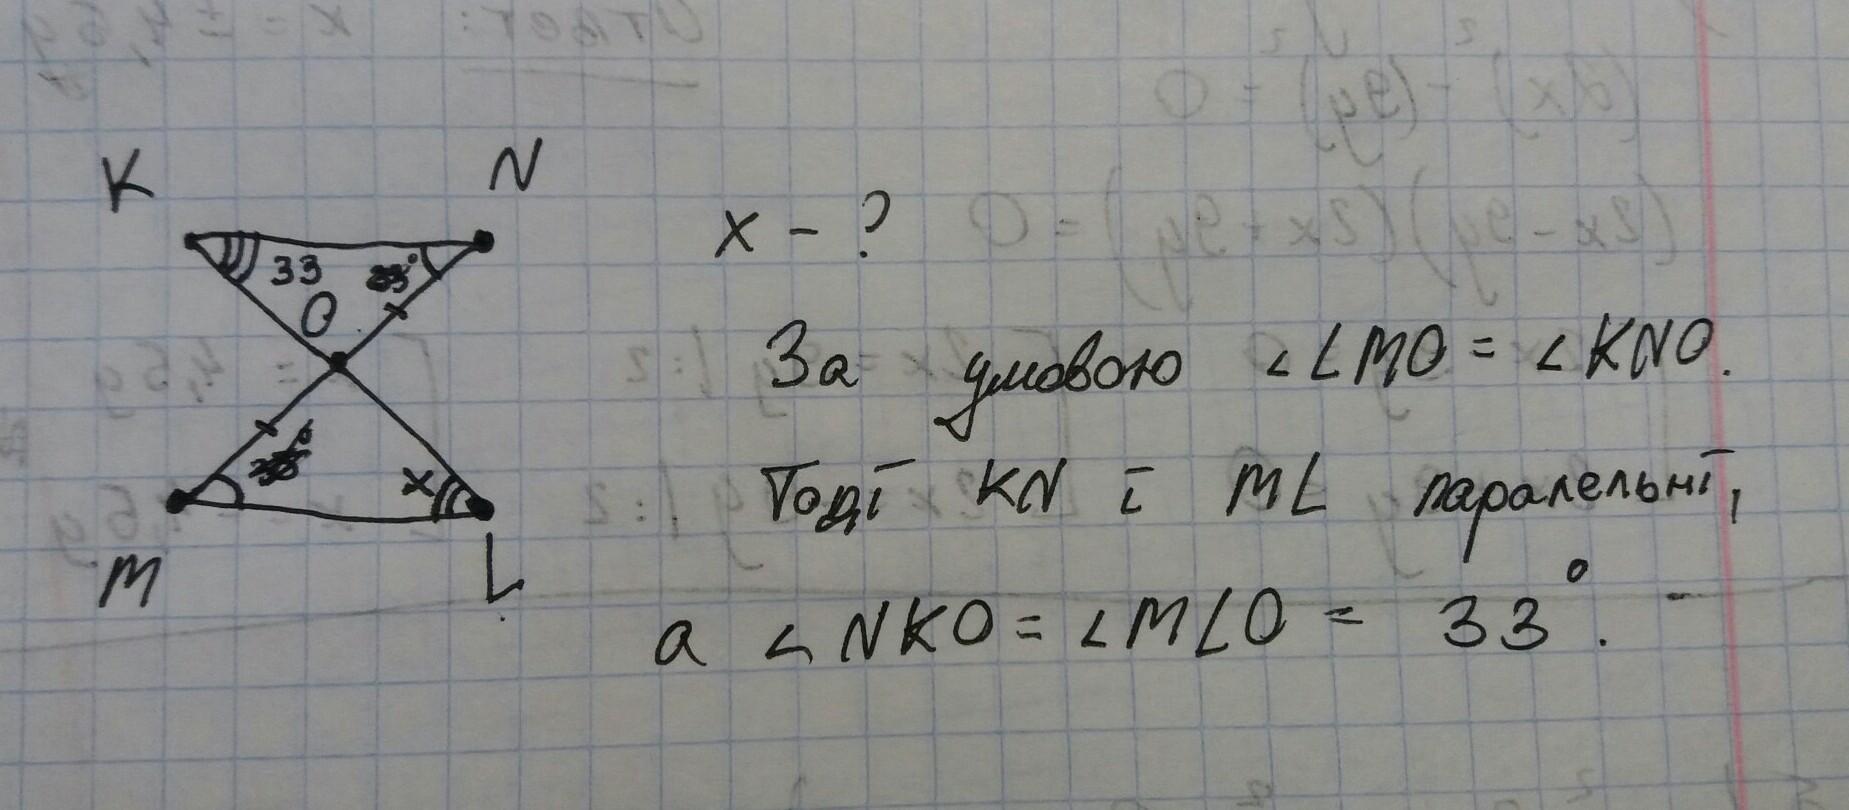 K N
33
O
x
M L
x - ?
За умовою ∠LMO = ∠KNO.
Тоді KN і ML паралельні,
а ∠NKO = ∠MLO = 33°.